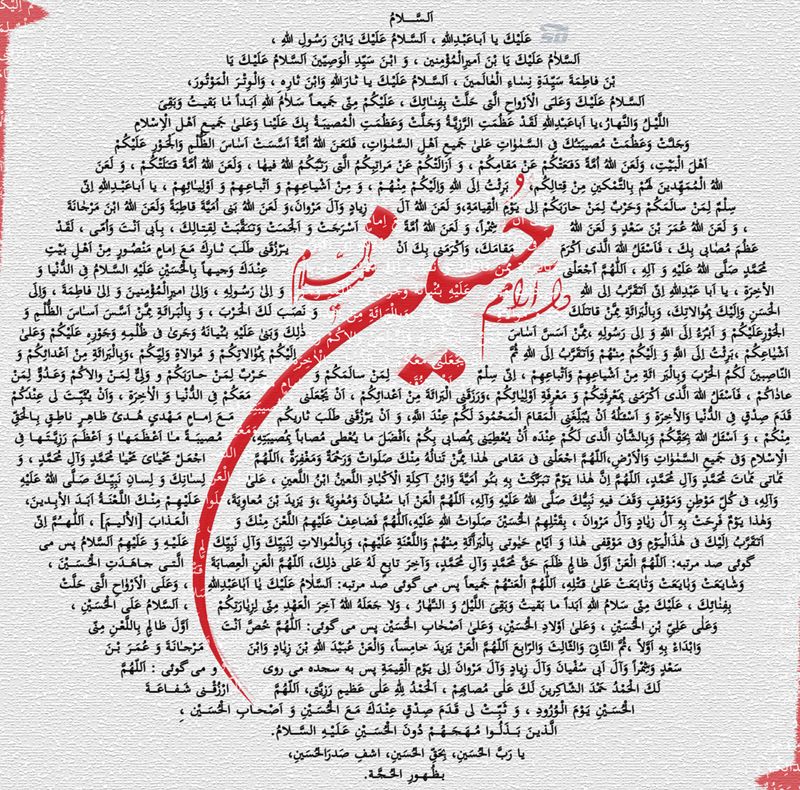 اَلسَّـــلامُ
عَلَيْكَ يا اَباعَبْدِاللهِ ، اَلسَّلامُ عَلَيْكَ يَابْنَ رَسُولِ اللهِ ،
اَلسَّلاْمُ عَلَيْكَ يَا بْنَ اَميرِالْمُؤْمِنين ، وَ ابْنَ سَيِّدِ الْوَصِيّينَ اَلسَّلامُ عَلَيْكَ يَا
بْنَ فاطِمَةَ سَيِّدَةِ نِساءِ الْعالَمينَ ، اَلسَّلامُ عَلَيْكَ يا ثارَاللهِ وَابْنَ ثارِهِ ، وَالْوِتْرَ الْمَوْتُورَ،
اَلسَّلامُ عَلَيْكَ وَعَلَى الْاَرْواحِ الَّتى حَلَّتْ بِفِنائِكَ ، عَلَيْكُمْ مِنّى جَميعاً سَلامُ اللهِ اَبَداً ما بَقيتُ وَبَقِىَ
اللَّيْلُ وَالنَّهارُ،يا اَباعَبْدِاللهِ لَقَدْ عَظُمَتِ الرَّزِيَّةُ وَجَلَّتْ وَعَظُمَتِ الْمُصيبَةُ بِكَ عَلَيْنا وَعَلىٰ جَميعِ اَهْلِ الْاِسْلامِ
وَجَلَّتْ وَعَظُمَتْ مُصيبَتُكَ فِى السَّمٰواتِ عَلىٰ جَميعِ اَهْلِ السَّمٰواتِ، فَلَعَنَ اللهُ اُمَّةً اَسَّسَتْ اَساسَ الظُّلْمِ وَالْجَوْرِ عَلَيْكُمْ
اَهْلَ الْبَيْتِ، وَلَعَنَ اللهُ اُمَّةً دَفَعَتْكُمْ عَنْ مَقامِكُمْ ، وَ اَزالَتْكُمْ عَنْ مَراتِبِكُمُ الَّتى رَتَّبَكُمُ اللهُ فيها ، وَلَعَنَ اللهُ اُمَّةً قَتَلَتْكُمْ ، وَ لَعَنَ
اللهُ الْمُمَهِّدينَ لَهُمْ بِالتَّمْكينِ مِنْ قِتالِكُمْ، بَرِئْتُ اِلَى اللهِ وَ اِلَيْكُمْ مِنْهُمْ ، وَ مِنْ اَشْياعِهِمْ وَ اَتْباعِهِمْ وَ اَوْلِيائِهِمْ ، يا اَباعَبْدِاللهِ اِنّى
سِلْمٌ لِمَنْ سالَمَكُمْ وَحَرْبٌ لِمَنْ حارَبَكُمْ اِلى يَوْمِ الْقِيامَةِ،وَ لَعَنَ اللهُ آلَ زِيادٍ وَآلَ مَرْوانَ،وَ لَعَنَ اللهُ بَنى اُمَيَّةَ قاطِبَةً وَلَعَنَ اللهُ ابْنَ مَرْجانَةَ
، وَ لَعَنَ اللهُ عُمَرَ بْنَ سَعْدٍ وَ لَعَنَ اللهُ شِمْراً، وَ لَعَنَ اللهُ اُمَّةً اَسْرَجَتْ وَ اَلْجَمَتْ وَتَنَقَّبَتْ لِقِتالِكَ ، بِاَبى اَنْتَ وَاُمّى ، لَقَدْ
عَظُمَ مُصابى بِكَ ، فَاَسْئَلُ اللهَ الَّذى اَكْرَمَ مَقامَكَ، وَاَكْرَمَنى بِكَ اَنْ يَرْزُقَنى طَلَبَ ثارِكَ مَعَ اِمامٍ مَنْصُورٍ مِنْ اَهْلِ بَيْتِ
مُحَمَّدٍ صَلَّى اللهُ عَلَيْهِ وَ آلِهِ ، اَللّٰهُمَّ اجْعَلْنى عِنْدَكَ وَجيهاً بِالْحُسَيْنِ عَلَيْهِ السَّلامُ فِى الدُّنْيا وَ
الْاٰخِرَةِ ، يا اَبا عَبْدِاللهِ اِنّى اَتَقَرَّبُ اِلَى اللهِ وَ اِلىٰ رَسُولِهِ ، وَاِلىٰ اميرِالْمُؤْمِنينَ وَ اِلىٰ فاطِمَةَ ، وَاِلَى
الْحَسَنِ وَاِلَيْكَ بِمُوالاتِكَ، وَبِالْبَرائَةِ مِمَّنْ قاتَلَكَ وَ نَصَبَ لَكَ الْحَرْبَ ، وَ بِالْبَرائَةِ مِمَّنْ اَسَّسَ اَساسَ الظُّلْمِ وَ
الْجَوْرِعَلَيْكُمْ وَ اَبْرَءُ اِلَى اللهِ وَ اِلىٰ رَسُولِهِ ،مِمَّنْ اَسَسَّ اَساسَ ذٰلِكَ وَبَنىٰ عَلَيْهِ بُنْيانَهُ وَجَرىٰ فى ظُلْمِهِ وَجَوْرِهِ عَلَيْكُمْ وَعَلىٰ
اَشْياعِكُمْ ،بَرِئْتُ اِلَى اللهِ وَ اِلَيْكُمْ مِنْهُمْ وَاَتَقَرَّبُ اِلَى اللهِ ثُمَّ اِلَيْكُمْ بِمُوالاتِكُمْ وَ مُوالاةِ وَلِيِّكُمْ ،وَبِالْبَرائَةِ مِنْ اَعْدائِكُمْ وَ
النّاصِبينَ لَكُمُ الْحَرْبَ وَبِالْبَرائَةِ مِنْ اَشْياعِهِمْ وَاَتْباعِهِمْ ، اِنّى سِلْمٌ لِمَنْ سالَمَكُمْ وَ حَرْبٌ لِمَنْ حارَبَكُمْ وَ وَلِىٌّ لِمَنْ والاكُمْ وَعَدُوٌّ لِمَنْ
عاداكُمْ ، فَاَسْئَلُ اللهَ الَّذى اَكْرَمَنى بِمَعْرِفَتِكُمْ وَ مَعْرِفَةِ اَوْلِيائِكُمْ ،وَرَزَقَنِى الْبَرائَةَ مِنْ اَعْدائِكُمْ ، اَنْ يَجْعَلَنى مَعَكُمْ فِى الدُّنْيا وَ الْاٰخِرَةِ ، وَاَنْ يُثَبِّتَ لى عِنْدَكُمْ
قَدَمَ صِدْقٍ فِى الدُّنْيا وَالْاٰخِرَةِ وَ اَسْئَلُهُ اَنْ يُبَلِّغَنِى الْمَقامَ الْمَحْمُودَ لَكُمْ عِنْدَ اللهِ، وَ اَنْ يَرْزُقَنى طَلَبَ ثاريكُمْ مَعَ اِمامٍ مَهْدِىٍّ هُدىً ظاهِرٍ ناطِقٍ بِالْحَقِّ
مِنْكُمْ ، وَ اَسْئَلُ اللهَ بِحَقِّكُمْ وَبِالشَّأْنِ الَّذى لَكُمْ عِنْدَهُ اَنْ يُعْطِيَنى بِمُصابى بِكُمْ ،اَفْضَلَ ما يُعْطى مُصاباً بِمُصيبَتِهِ، مُصيبَةً ما اَعْظَمَها وَ اَعْظَمَ رَزِيَّتَها فِى
الْاِسْلامِ وَفى جَميعِ السَّمٰواتِ وَالْاَرْضِ،اَللّٰهُمَّ اجْعَلْنى فى مَقامى هٰذا مِمَّنْ تَنالُهُ مِنْكَ صَلَواتٌ وَرَحْمَةٌ وَمَغْفِرَةٌ ،اَللّٰهُمَّ اجْعَلْ مَحْياىَ مَحْيا مُحَمَّدٍ وَآلِ مُحَمَّدٍ ، وَ
مَماتى مَماتَ مُحَمَّدٍ وَآلِ مُحَمَّدٍ، اَللّٰهُمَّ اِنَّ هٰذا يَوْمٌ تَبَرَّكَتْ بِهِ بَنُو اُمَيَّةَ وَابْنُ آكِلَةِ الْاَكْبادِ اللَّعينُ ابْنُ اللَّعينِ ، عَلىٰ لِسانِكَ وَ لِسانِ نَبِيِّكَ صَلَّى اللهُ عَلَيْهِ
وَآلِهِ، فى كُلِّ مَوْطِنٍ وَمَوْقِفٍ وَقَفَ فيهِ نَبِيُّكَ صَلَّى اللهُ عَلَيْهِ وَآلِهِ، اَللّٰهُمَّ الْعَنْ اَبا سُفْيانَ وَمُعٰوِيَةَ ،وَ يَزيدَ بْنَ مُعاوِيَةَ، عَلَيْهِمْ مِنْكَ اللَّعْنَةُ اَبَدَ الْاٰبِدينَ،
وَهٰذا يَوْمٌ فَرِحَتْ بِهِ آلُ زِيادٍ وَآلُ مَرْوانَ ، بِقَتْلِهِمُ الْحُسَيْنَ صَلَواتُ اللهِ عَلَيْهِ،اَللّٰهُمَّ فَضاعِفْ عَلَيْهِمُ اللَّعْنَ مِنْكَ وَ الْعَذابَ [الْاَليمَ] ، اَللّٰهُمَّ اِنّى
اَتَقَرَّبُ اِلَيْكَ فى هٰذَاالْيَوْمِ وَفى مَوْقِفى هٰذا وَ اَيّامِ حَيٰوتى بِالْبَرائَةِ مِنْهُمْ وَاللَّعْنَةِ عَلَيْهِمْ، وَبِالْمُوالاتِ لِنَبِيِّكَ وَآلِ نَبِيِّكَ عَلَيْهِ وَ عَلَيْهِمُ اَلسَّلامُ پس مى
گوئى صد مرتبه: اَللّٰهُمَّ الْعَنْ اَوَّلَ ظالِمٍ ظَلَمَ حَقَّ مُحَمَّدٍ وَآلِ مُحَمَّدٍ، وَآخِرَ تابِعٍ لَهُ عَلىٰ ذٰلِكَ، اَللّٰهُمَّ الْعَنِ الْعِصابَةَ الَّتى جاهَدَتِ الْحُسَيْنَ ،
وَشايَعَتْ وَبايَعَتْ وَتابَعَتْ عَلىٰ قَتْلِهِ، اَللّٰهُمَّ الْعَنْهُمْ جَميعاً پس مى گوئى صد مرتبه: اَلسَّلامُ عَلَيْكَ يا اَباعَبْدِاللهِ ، وَعَلَى الْاَرْواحِ الَّتى حَلَّتْ
بِفِنائِكَ ، عَلَيْكَ مِنّى سَلامُ اللهِ اَبَداً ما بَقيتُ وَبَقِىَ اللَّيْلُ وَ النَّهارُ ، وَلا جَعَلَهُ اللهُ آخِرَ الْعَهْدِ مِنّى لِزِيارَتِكُمْ ، اَلسَّلامُ عَلَى الْحُسَيْنِ ،
وَعَلىٰ عَلِىِّ بْنِ الْحُسَيْنِ ، وَعَلىٰ اَوْلادِ الْحُسَيْنِ، وَعَلىٰ اَصْحابِ الْحُسَيْنِ پس مى گوئى: اَللّٰهُمَّ خُصَّ اَنْتَ اَوَّلَ ظالِمٍ بِاللَّعْنِ مِنّى
وَابْدَاْءْ بِهِ اَوَّلاً ،ثُمَّ الثّانِىَ وَالثّالِثَ وَالرّابِعَ اَللّٰهُمَّ الْعَنْ يَزيدَ خامِساً، وَالْعَنْ عُبَيْدَ اللهِ بْنَ زِيادٍ وَابْنَ مَرْجانَةَ وَ عُمَرَ بْنَ
سَعْدٍ وَشِمْراً وَ آلَ اَبى سُفْيانَ وَآلَ زِيادٍ وَآلَ مَرْوانَ اِلىٰ يَوْمِ الْقِيٰمَةِ پس به سجده مى روى و مى گوئى : اَللّٰهُمَّ
لَكَ الْحَمْدُ حَمْدَ الشّاكِرينَ لَكَ عَلىٰ مُصابِهِمْ ، اَلْحَمْدُ لِلّٰهِ عَلىٰ عَظيمِ رَزِيَّتى، اَللّٰهُمَّ ارْزُقْنى شَفاعَةَ
الْحُسَيْنِ يَوْمَ الْوُرُودِ ، وَ ثَبِّتْ لى قَدَمَ صِدْقٍ عِنْدَكَ مَعَ الْحُسَيْنِ وَ اَصْحابِ الْحُسَيْنِ ،
الَّذينَ بَذَلُوا مُهَجَهُمْ دُونَ الْحُسَيْنِ عَلَيْهِ السَّلامُ.
يا رَبَّ الْحُسَينِ، بِحَقِّ الْحُسَينِ، اشفِ صَدرَالحُسَينِ،
بِظُهورِ الحُجَّة.
حسین
علیه السلام
دل آرامم